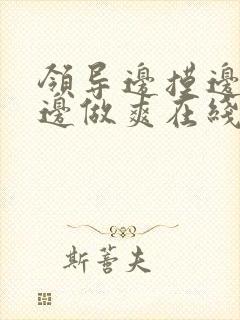 領导邊摸邊
邊做爽在綫
斯蔷夫